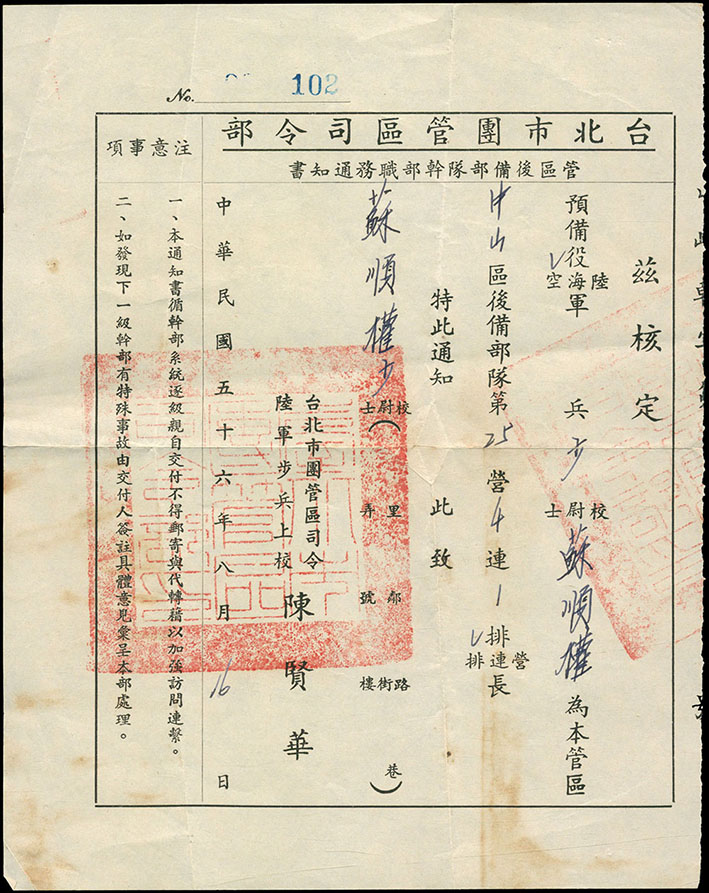 No. 102
台北市團管區司令部
管區後備部隊幹部職務通知書
茲核定
預備役陸海空軍 兵 少校尉士 蘇順權 為本管區
中山區後備部隊第25營4連1排營連排長
特此通知 此致
蘇順權 少校尉士(里鄰路街巷弄號樓)
台北市團管區司令
陸軍步兵上校 陳賢華
中華民國五十六年八月16日
注意事項
一、本通知書循幹部系統逐級親自交付不得郵寄與代轉藉以加強訪問連繫。
二、如發現下一級幹部有特殊事故由交付人簽註具體意見彙呈本部處理。